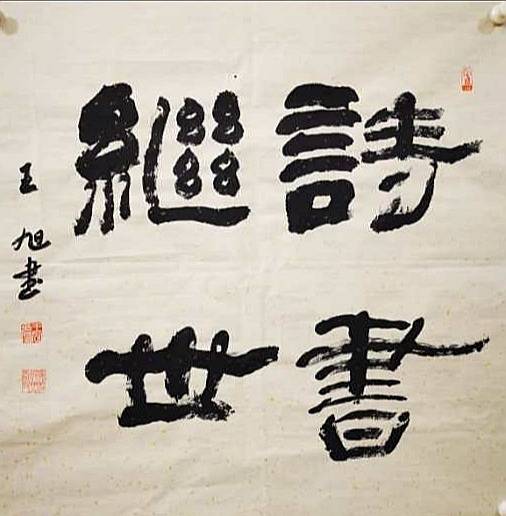 詩書
繼世
王旭書